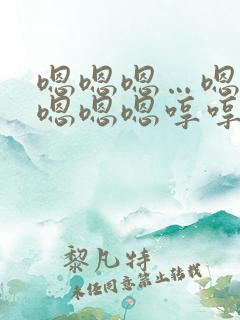 嗯嗯嗯…嗯
嗯嗯嗯哼哼
黎凡特
未经同意禁止转载